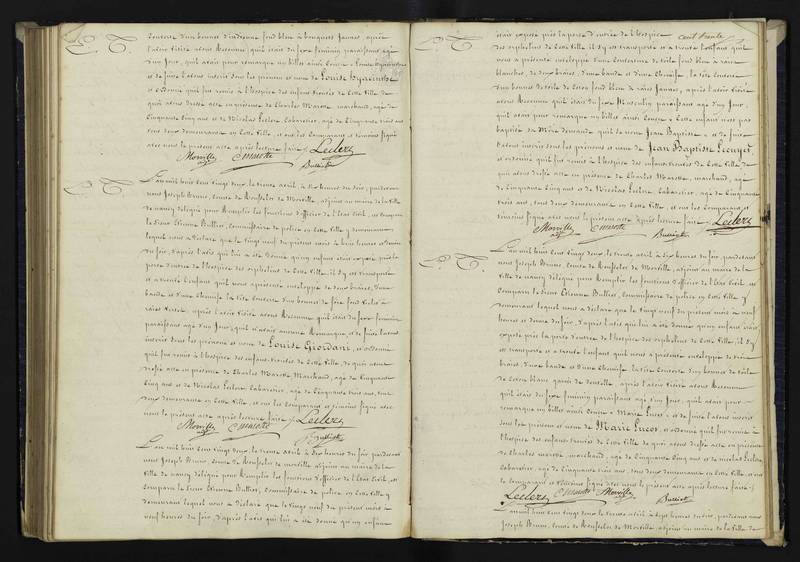 couverte d'un bonnet d'indienne fond bleu à bouquets jaunes, après
l'avoir visité avons reconnu qu'il était du sexe féminin paraissant âgé
d'un jour, qu'il avait pour remarque un billet ainsi conçu « Louise Hyacinthe »
et de suite l'avons inscrit sous les prénoms et nom de Louise Hyacinthe
et ordonné qu'il fut remis à l'hospice des enfans trouvés de cette ville de
quoi avons dressé acte en présence de Charles Marotte, marchand, âgé de
cinquante cinq ans et de Nicolas Leclerc, cabaretier, âgé de cinquante trois ans
tous deux demeurant en cette ville, et ont les comparans et témoins signé
avec nous le présent acte après lecture faite.
Morville adjt C marotte Leclerc
E. T. L'an mil huit cent vingt deux, le trente avril, à six heures du soir, pardevant
nous Joseph Bruno, comte de Rousselot de Morville, adjoint au maire de la ville
de nancy délégué pour remplir les fonctions d'officier de l'état civil, est comparu
le sieur Etienne Buttier, commissaire de police en cette ville y demeurant
lequel nous a déclaré que le vingt neuf du présent mois à huit heures et demie
du soir, d'après l'avis qui lui a été donné qu'un enfant était exposé près la
porte d'entrée de l'hospice des orphelins de cette ville, il s'y est transporté
et a trouvé l'enfant qu'il nous a présenté enveloppé de deux braies, d'une
bande et d'une chemise la tête couverte d'un bonnet de soie fond violet à
raies vertes, après l'avoir visité avons reconnu qu'il était du sexe féminin
paraissant âgé d'un jour, qu'il n'avait aucune remarque, et de suite l'avons
inscrit sous les prénoms et nom de Louise Giordani, et ordonné
qu'il fut remis à l'hospice des enfans trouvés de cette ville, de quoi avons
dressé acte en présence de Charles Marotte marchand, âgé de cinquante
cinq ans et de Nicolas Leclerc cabaretier, âgé de cinquante trois ans, tous
deux demeurant en cette ville, et ont les comparans et témoins signé avec
nous le présent acte après lecture faite.
Morville adjt C marotte Leclerc
L'an mil huit cent vingt deux, le trente avril à six heures du soir pardevant
nous Joseph Bruno, comte de Rousselot de morville adjoint au maire de la
ville de nancy, délégué pour remplir les fonctions d'officier de l'état civil, est
comparu le sieur Etienne Buttier, commissaire de police en cette ville y
demeurant lequel nous a déclaré que le vingt neuf du présent mois à
neuf heures du soir, d'après l'avis qui lui a été donné qu'un enfant
cent trente
était exposé près la porte d'entrée de l'hospice
des orphelins de cette ville, il s'y est transporté et a trouvé l'enfant qu'il
nous a présenté enveloppé d'une couverture de toile fond bleu à raies
blanches, de deux braies, d'une bande et d'une chemise, la tête couverte
d'un bonnet de toile de coton fond bleu à raies jaunes, après l'avoir visité
avons reconnu qu'il était du sexe masculin paraissant âgé d'un jour,
qu'il avait pour remarque un billet ainsi conçu « cet enfant n'est pas
baptisé sa mère demande qu'il se nom Jean Baptiste » et de suite
l'avons inscrit sous les prénoms et nom de Jean Baptiste Lecuyer,
et ordonné qu'il fut remis à l'hospice des enfans trouvés de cette ville de
quoi avons dressé acte en présence de Charles Marotte, marchand, âgé
de cinquante cinq ans et de Nicolas Leclerc cabaretier, âgé de cinquante
trois ans, tous deux demeurant en cette ville, et ont les comparans et
témoins signé avec nous le présent acte après lecture faite. Leclerc
Morville adjt C marotte
E. T. L'an mil huit cent vingt deux, le trente avril, à six heures du soir, pardevant
nous Joseph Bruno, comte de Rousselot de Morville, adjoint au maire de la
ville de nancy délégué pour remplir les fonctions d'officier de l'état civil, est
comparu le sieur Etienne Buttier, commissaire de police en cette ville y
demeurant lequel nous a déclaré que le vingt neuf du présent mois à neuf
heures et demie du soir, d'après l'avis qui lui a été donné qu'un enfant était
exposé près la porte d'entrée de l'hospice des orphelins de cette ville, il s'y
est transporté et a trouvé l'enfant qu'il nous a présenté enveloppé de trois
braies, d'une bande et d'une chemise, la tête couverte d'un bonnet de toile
de coton blanc garni de dentelle, après l'avoir visité avons reconnu
qu'il était du sexe féminin paraissant âgé d'un jour, qu'il avait pour
remarque un billet ainsi conçu « Marie Lucot » et de suite l'avons inscrit
sous les prénoms et nom de Marie Lucot, et ordonné qu'il fut remis à
l'hospice des enfans trouvés de cette ville de quoi avons dressé acte en présence
de Charles marotte, marchand, âgé de cinquante cinq ans et de nicolas Leclerc
cabaretier, âgé de cinquante trois ans, tous deux demeurant en cette ville, et ont
les comparans et témoins signé avec nous le présent acte après lecture faite.
Leclerc C marotte Morville adjt
L'an mil huit cent vingt deux le trente avril, à sept heures du soir, pardevant nous
Joseph Bruno, comte de Rousselot de Morville, adjoint au maire de la ville de